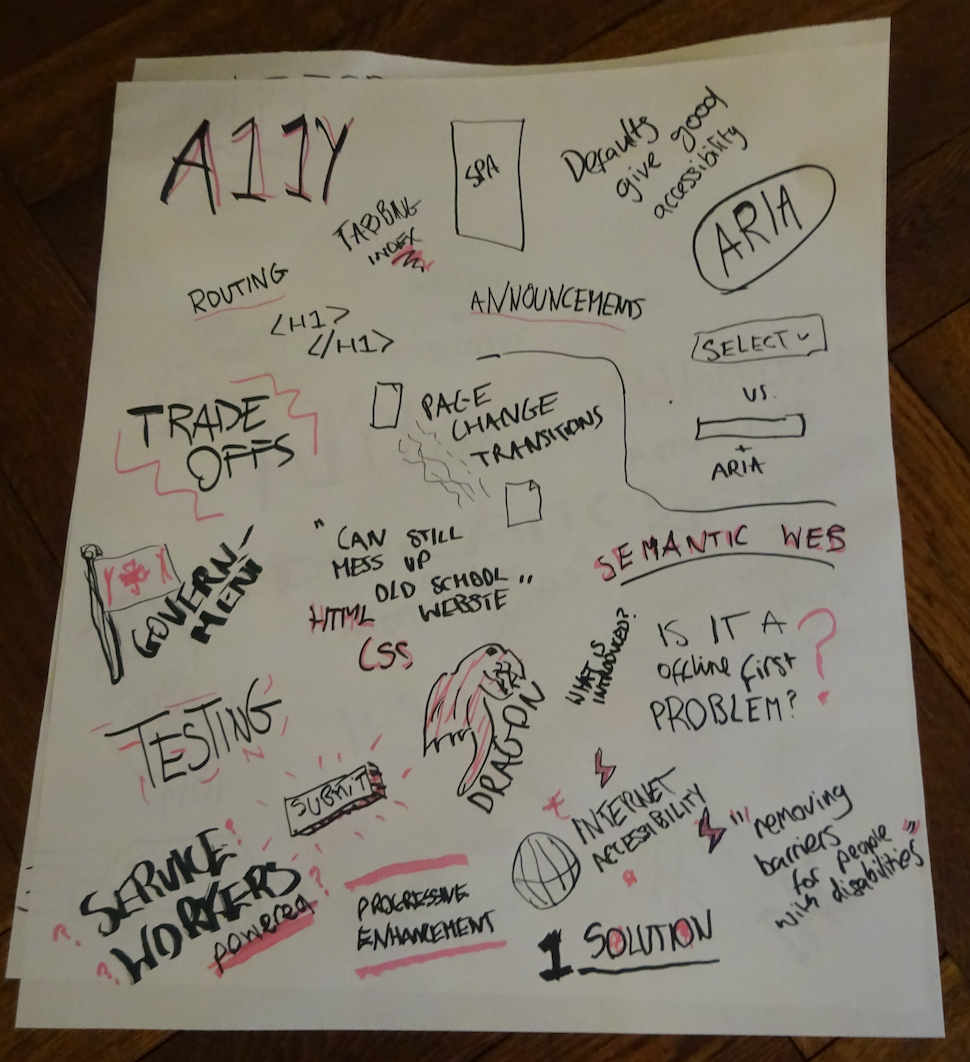 A11Y
SPA
Defaults
give good
accessibility
ARIA
TABBING
INDEX
ROUTING
<H1>
</H1>
ANNOUNCEMENTS
SELECT
VS.
+
ARIA
TRADE
OFFS
PAGE
CHANGE
TRANSITIONS
"CAN STILL
MESS UP
OLD SCHOOL
WEBSTE"
HTML
CSS
SEMANTIC WEB
GOVERN-
MENT
WHAT IS
INTRODUCED?
IS IT A
offline first
PROBLEM?
?
TESTING
DRAGON
SUBMIT
INTERNET
ACCESSIBILITY
"removing
barriers
for people
with disabilities"
SERVICE
WORKERS
powered
PROGRESSIVE
ENHANCEMENT
1 SOLUTION